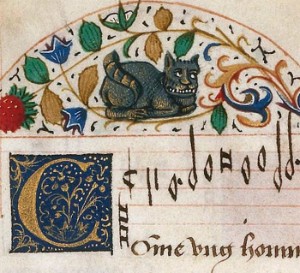 C
Ome vng homm